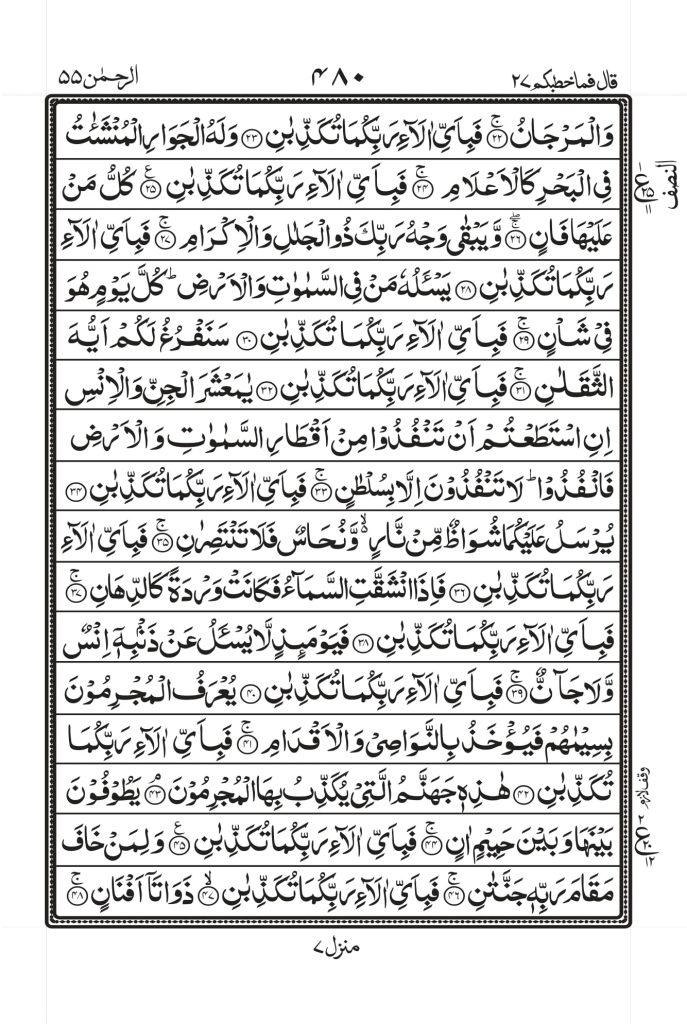 الرحمٰن ۵۵
۴۸۰
قال فما خطبكم ۲۷
وَالْمَرْجَانُ ۚ‏﴿۲۲﴾ فَبِاَىِّ اٰلَاۤءِ رَبِّكُمَا تُكَذِّبٰنِ ﴿۲۳﴾ وَلَهُ الْجَوَارِ الْمُنْشَئٰتُ
فِى الْبَحْرِ كَالْاَعْلَامِ ۚ‏﴿۲۴﴾ فَبِاَىِّ اٰلَاۤءِ رَبِّكُمَا تُكَذِّبٰنِ ﴿۲۵﴾ ع كُلُّ مَنْ
عَلَيْهَا فَانٍ ۚۖ‏﴿۲۶﴾ وَّيَبْقٰى وَجْهُ رَبِّكَ ذُو الْجَلٰلِ وَالْاِكْرَامِ ۚ‏﴿۲۷﴾ فَبِاَىِّ اٰلَاۤءِ
رَبِّكُمَا تُكَذِّبٰنِ ﴿۲۸﴾ يَسْئَلُهٗ مَنْ فِى السَّمٰوٰتِ وَالْاَرْضِ ؕ كُلَّ يَوْمٍ هُوَ
فِىْ شَاْنٍ ۚ‏﴿۲۹﴾ فَبِاَىِّ اٰلَاۤءِ رَبِّكُمَا تُكَذِّبٰنِ ﴿۳۰﴾ سَنَفْرُغُ لَكُمْ اَيُّهَ
الثَّقَلٰنِ ۚ‏﴿۳۱﴾ فَبِاَىِّ اٰلَاۤءِ رَبِّكُمَا تُكَذِّبٰنِ ﴿۳۲﴾ يٰمَعْشَرَ الْجِنِّ وَالْاِنْسِ
اِنِ اسْتَطَعْتُمْ اَنْ تَنْفُذُوْا مِنْ اَقْطَارِ السَّمٰوٰتِ وَالْاَرْضِ
فَانْفُذُوْا ؕ لَا تَنْفُذُوْنَ اِلَّا بِسُلْطٰنٍ ۚ‏﴿۳۳﴾ فَبِاَىِّ اٰلَاۤءِ رَبِّكُمَا تُكَذِّبٰنِ ﴿۳۴﴾
يُرْسَلُ عَلَيْكُمَا شُوَاظٌ مِّنْ نَّارٍ ۙ وَّنُحَاسٌ فَلَا تَنْتَصِرٰنِ ۚ‏﴿۳۵﴾ فَبِاَىِّ اٰلَاۤءِ
رَبِّكُمَا تُكَذِّبٰنِ ﴿۳۶﴾ فَاِذَا انْشَقَّتِ السَّمَآءُ فَكَانَتْ وَرْدَةً كَالدِّهَانِ ۚ‏﴿۳۷﴾
فَبِاَىِّ اٰلَاۤءِ رَبِّكُمَا تُكَذِّبٰنِ ﴿۳۸﴾ فَيَوْمَئِذٍ لَّا يُسْئَلُ عَنْ ذَنْۢبِهٖۤ اِنْسٌ
وَّلَا جَآنٌّ ۚ‏﴿۳۹﴾ فَبِاَىِّ اٰلَاۤءِ رَبِّكُمَا تُكَذِّبٰنِ ﴿۴۰﴾ يُعْرَفُ الْمُجْرِمُوْنَ
بِسِيْمٰهُمْ فَيُؤْخَذُ بِالنَّوَاصِىْ وَالْاَقْدَامِ ۚ‏﴿۴۱﴾ فَبِاَىِّ اٰلَاۤءِ رَبِّكُمَا
تُكَذِّبٰنِ ﴿۴۲﴾ هٰذِهٖ جَهَنَّمُ الَّتِىْ يُكَذِّبُ بِهَا الْمُجْرِمُوْنَ ۘ‏﴿۴۳﴾ يَطُوْفُوْنَ
بَيْنَهَا وَبَيْنَ حَمِيْمٍ اٰنٍ ۚ‏﴿۴۴﴾ فَبِاَىِّ اٰلَاۤءِ رَبِّكُمَا تُكَذِّبٰنِ ﴿۴۵﴾ ع وَلِمَنْ خَافَ
مَقَامَ رَبِّهٖ جَنَّتٰنِ ۚ‏﴿۴۶﴾ فَبِاَىِّ اٰلَاۤءِ رَبِّكُمَا تُكَذِّبٰنِ ۙ‏﴿۴۷﴾ ذَوَاتَاۤ اَفْنَانٍ ۚ‏﴿۴۸﴾
النصف
وقف لازم
منزل ۷